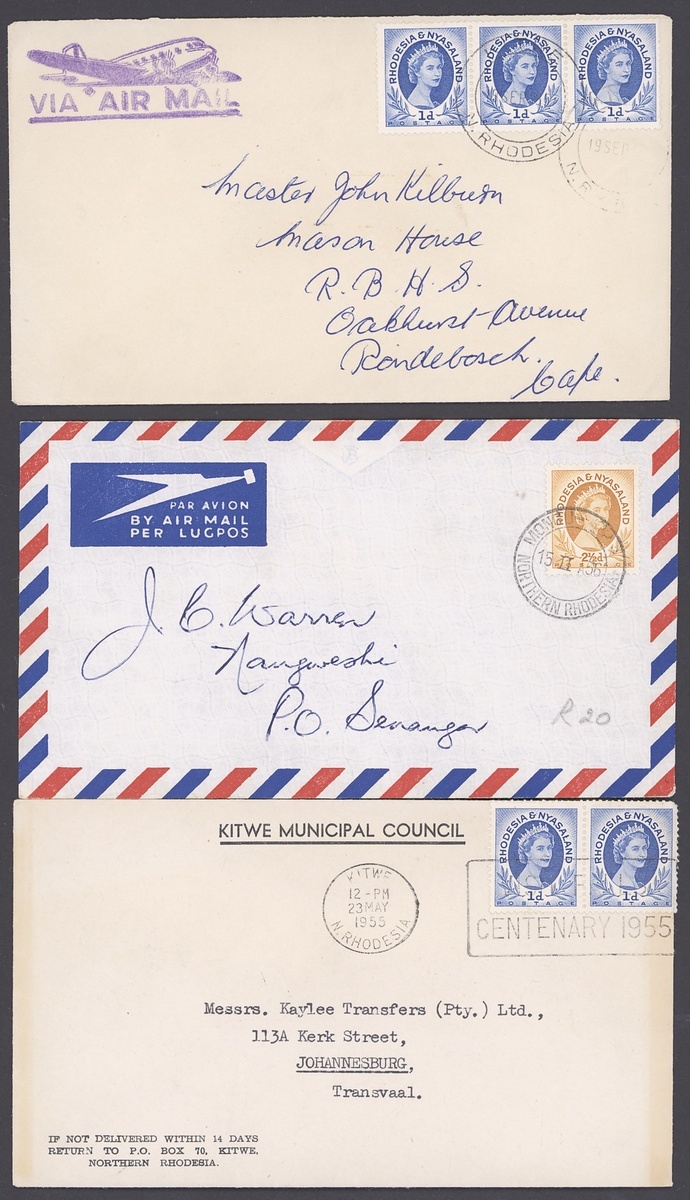 VIA AIR MAIL
RHODESIA & NYASALAND RHODESIA & NYASALAND RHODESIA & NYASALAND
1d 1d 1d
POSTAGE POSTAGE POSTAGE
N. RHODESIA
19 SEP
Master John Kilburn
Mason House
R.B.H.S.
Oakhurst Avenue
Rondebosch.
Cape.
PAR AVION
BY AIR MAIL
PER LUGPOS
RHODESIA & NYASALAND
2½d
NORTHERN RHODESIA
J C. Warren
Nangweshi
P.O. Senanga
R20
KITWE MUNICIPAL COUNCIL
RHODESIA & NYASALAND RHODESIA & NYASALAND
1d 1d
POSTAGE POSTAGE
KITWE
12-PM
23 MAY
1955
N. RHODESIA
CENTENARY 1955
Messrs. Kaylee Transfers (Pty.) Ltd.,
113A Kerk Street,
JOHANNESBURG,
Transvaal.
IF NOT DELIVERED WITHIN 14 DAYS
RETURN TO P.O. BOX 70, KITWE,
NORTHERN RHODESIA.